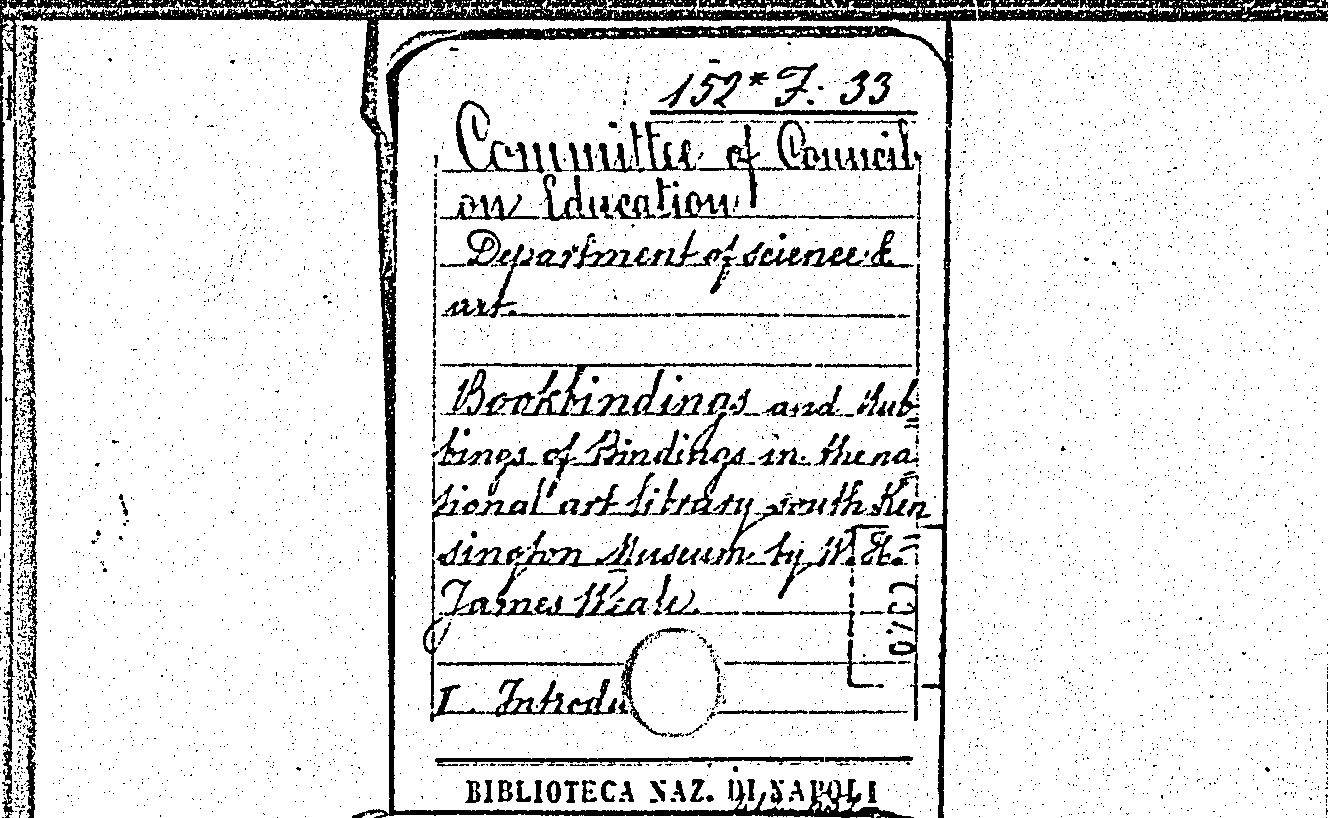 152* F. 33
Committee of Council
on Education
Department of science &
art.
Bookbindings and Rub=
bings of Bindings in the na=
tional art library south Ken=
sington Museum by W. H.
James Weale.
I. Introdu
BIBLIOTECA NAZ. DI NAPOLI